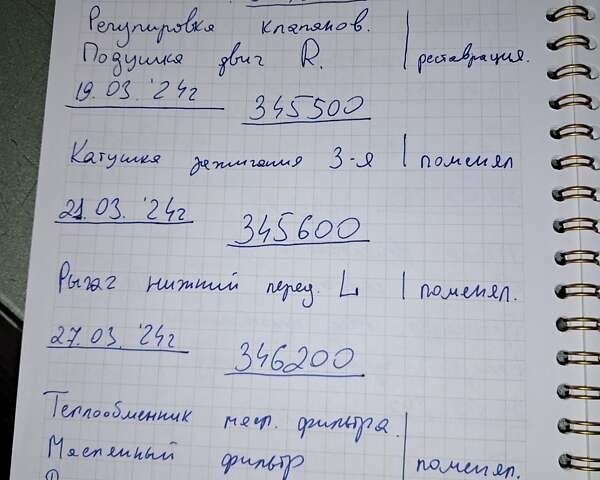 Регулировка клапанов.
Подушка двиг R. | реставрация.
19.03.'24г 345500
Катушка зажигания 3-я | поменял
21.03.'24г 345600
Рычаг нижний перед. L | поменял.
27.03.'24г 346200
Теплообменник масл. фильтра.
Масляный фильтр | поменял.